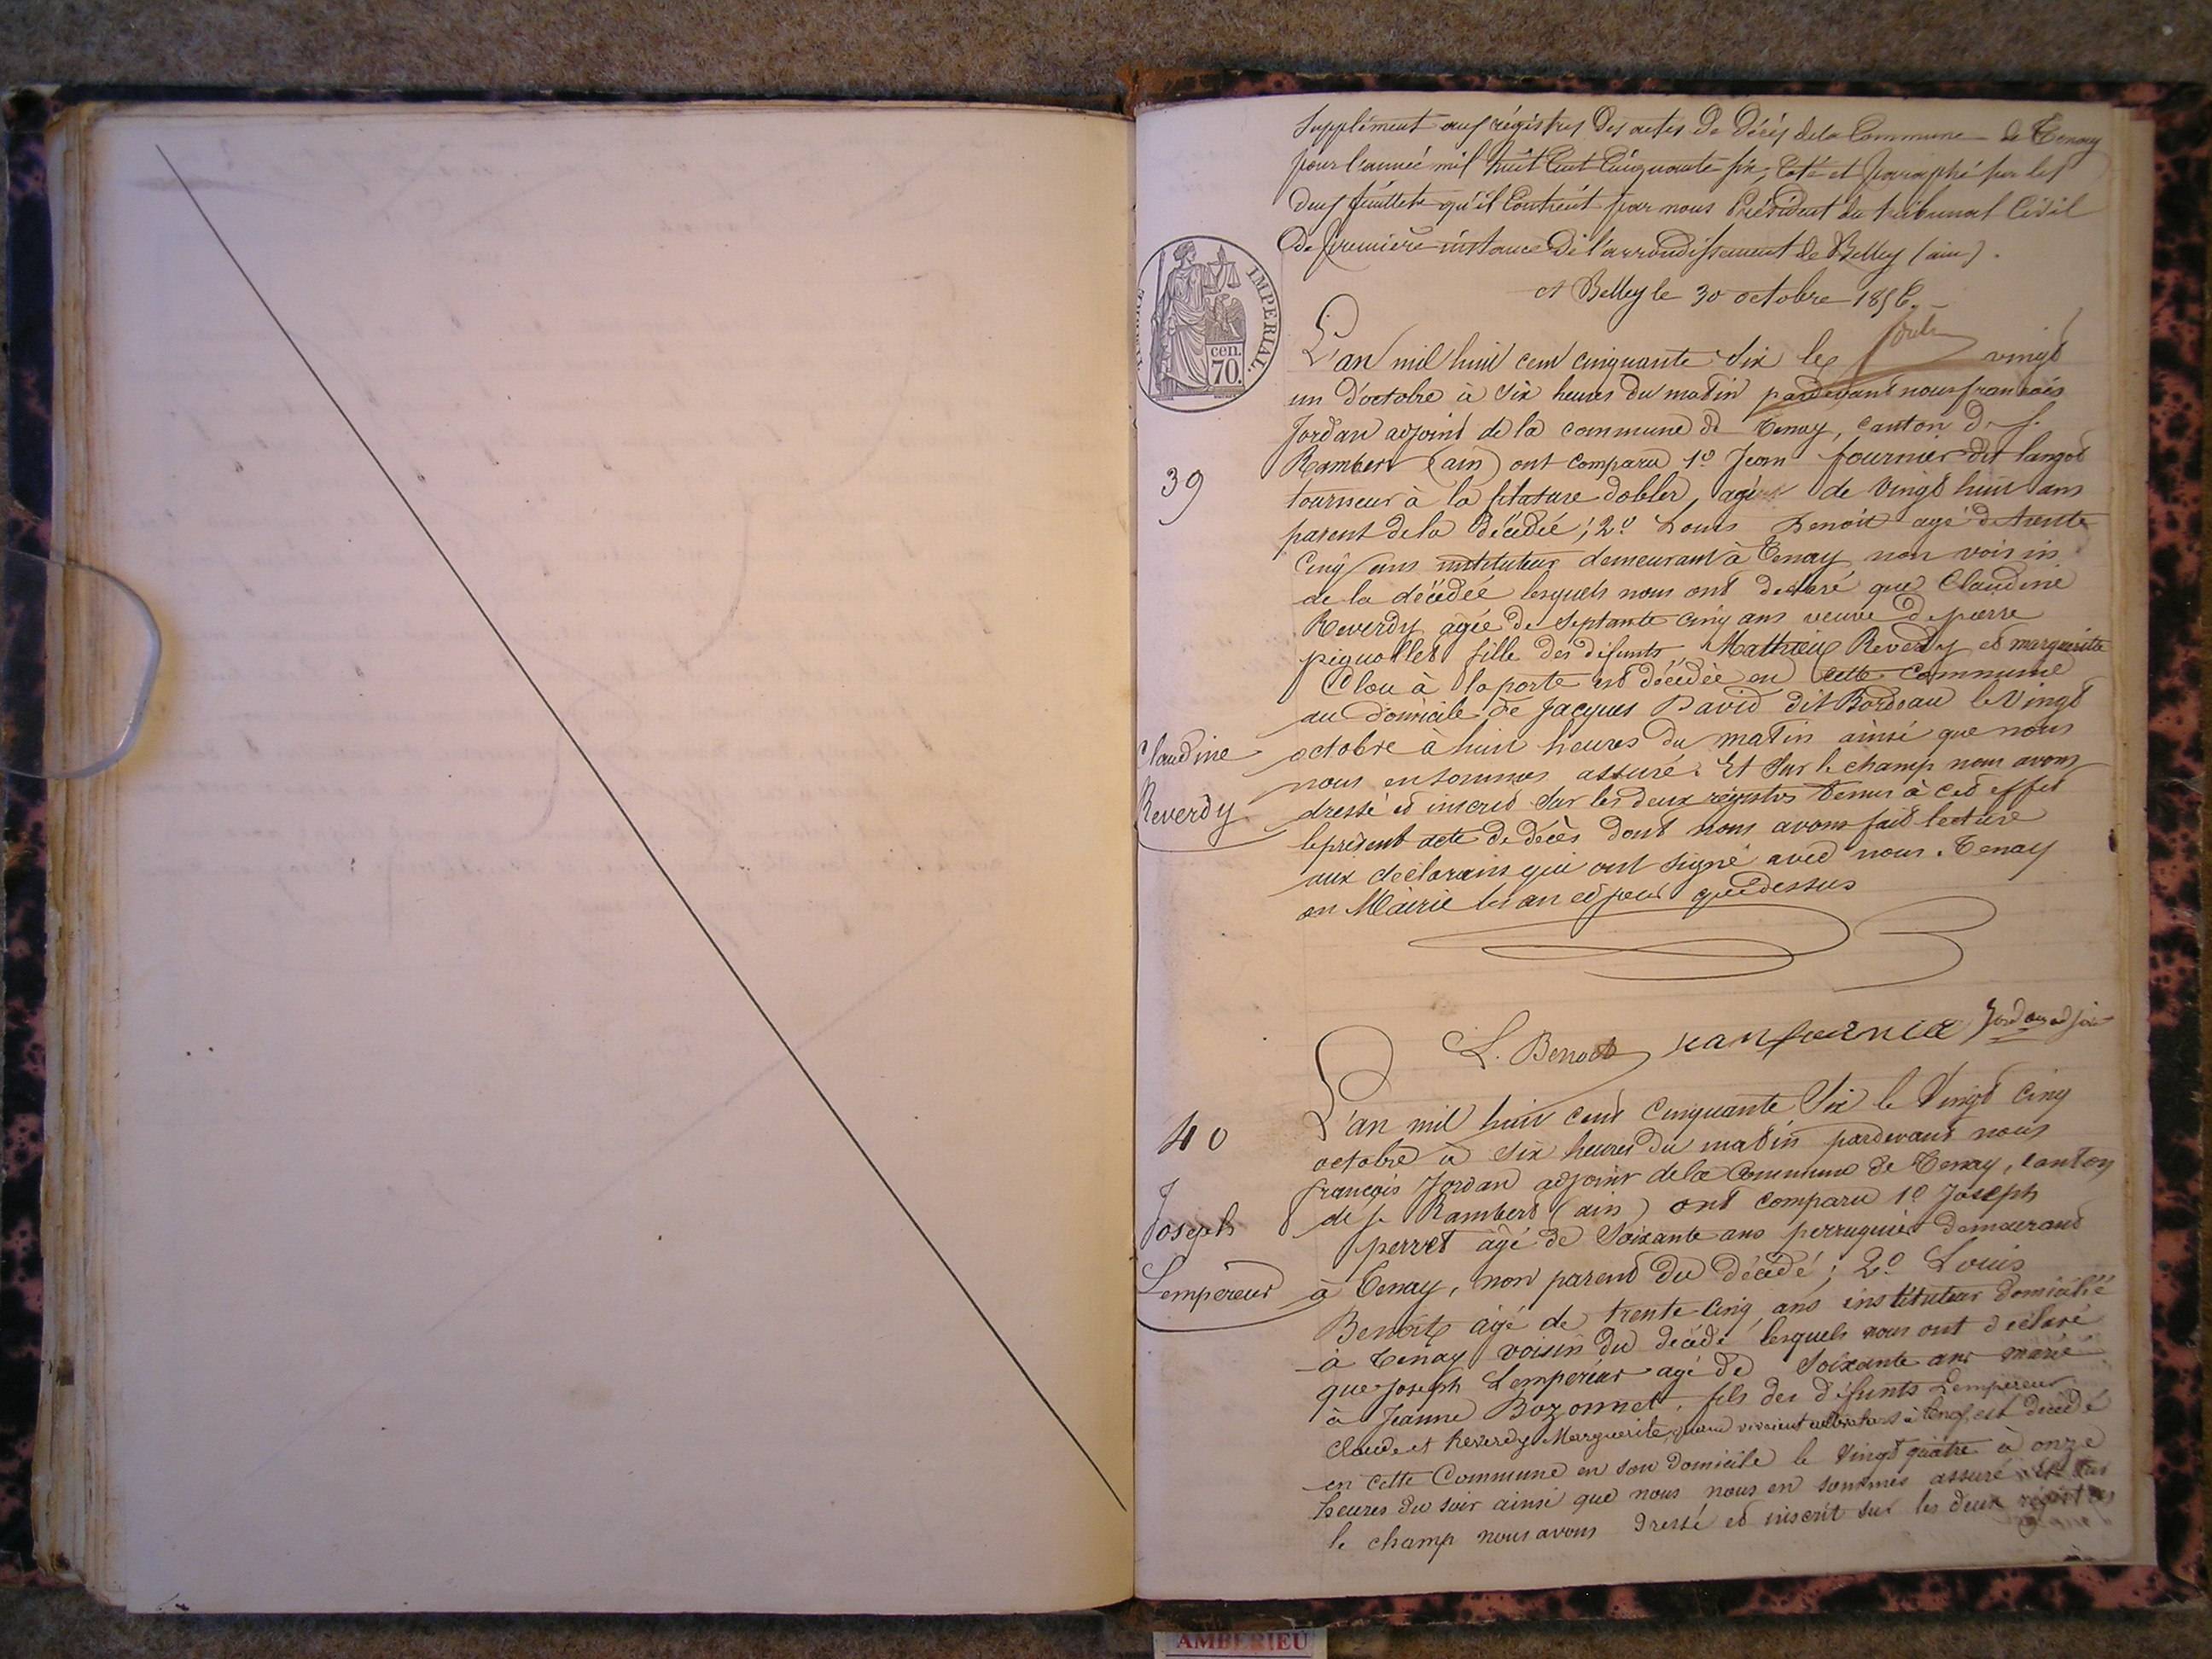 Supplément aux régistres des actes de décès de la Commune de Tenay
pour l'année mil huit cent cinquante six, coté et paraphé sur les
deux feuillets qu'il contient par nous Président du tribunal Civil
de première instance de l'arrondissement de Belley (ain).
A Belley le 30 octobre 1856.
TIMBRE IMPERIAL.
cen.
70.
L'an mil huit cent cinquante six le vingt
un d'octobre à six heures du matin pardevant nous françois
Jordan adjoint de la commune de Tenay, canton de S.
39
Rambert (ain) ont comparu 1º Jean fournier dit langot
tourneur à la filature dobler, agé de vingt huit ans
parent de la décédée; 2º Louis Benoit agé de trente
cinq ans instituteur demeurant à Tenay non voisin
de la décédée lesquels nous ont déclaré que Claudine
Reverdy agée de septante cinq ans veuve de pierre
pignollet fille des défunts Mathieu Reverdy et marguerite
Clou à la porte est décédée en cette commune
au domicile de Jacques David dit Bordeau le vingt
Claudine
Reverdy
octobre à huit heures du matin ainsi que nous
nous en sommes assuré. Et sur le champ nous avons
dressé et inscrit sur les deux régistres tenus à cet effet
le présent acte de décès dont nous avons fait lecture
aux déclarans qui ont signé avec nous. Tenay
en Mairie les an et jour que dessus
L. Benoit jean fournier Jordan adjoint
L'an mil huit cent cinquante six le vingt cinq
40
octobre à six heures du matin pardevant nous
françois Jordan adjoint de la Commune de Tenay, canton
de S. Rambert (ain) ont comparu 1º Joseph
Joseph
Lempereur
perret agé de soixante ans perruquier demeurant
à Tenay, non parent du décédé; 2º Louis
Benoit agé de trente cinq ans instituteur domicilié
à Tenay voisin du décédé lesquels nous ont déclaré
que Joseph Lempereur agé de soixante ans marié
à Jeanne Bozonnet, fils des défunts Lempereur
Claude et Reverdy Marguerite, quand vivaient cultivateurs à Tenay, est décédé
en cette Commune en son domicile le vingt quatre à onze
heures du soir ainsi que nous nous en sommes assuré. Et sur
le champ nous avons dressé et inscrit sur les deux régistres
AMBERIEU